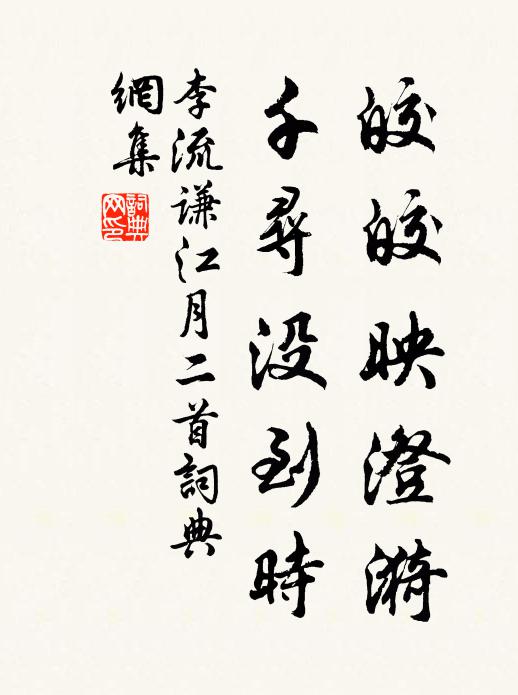 皎皎映澄漪
千尋没到時
李流谦江月二首詞典
網集
詞典
网印